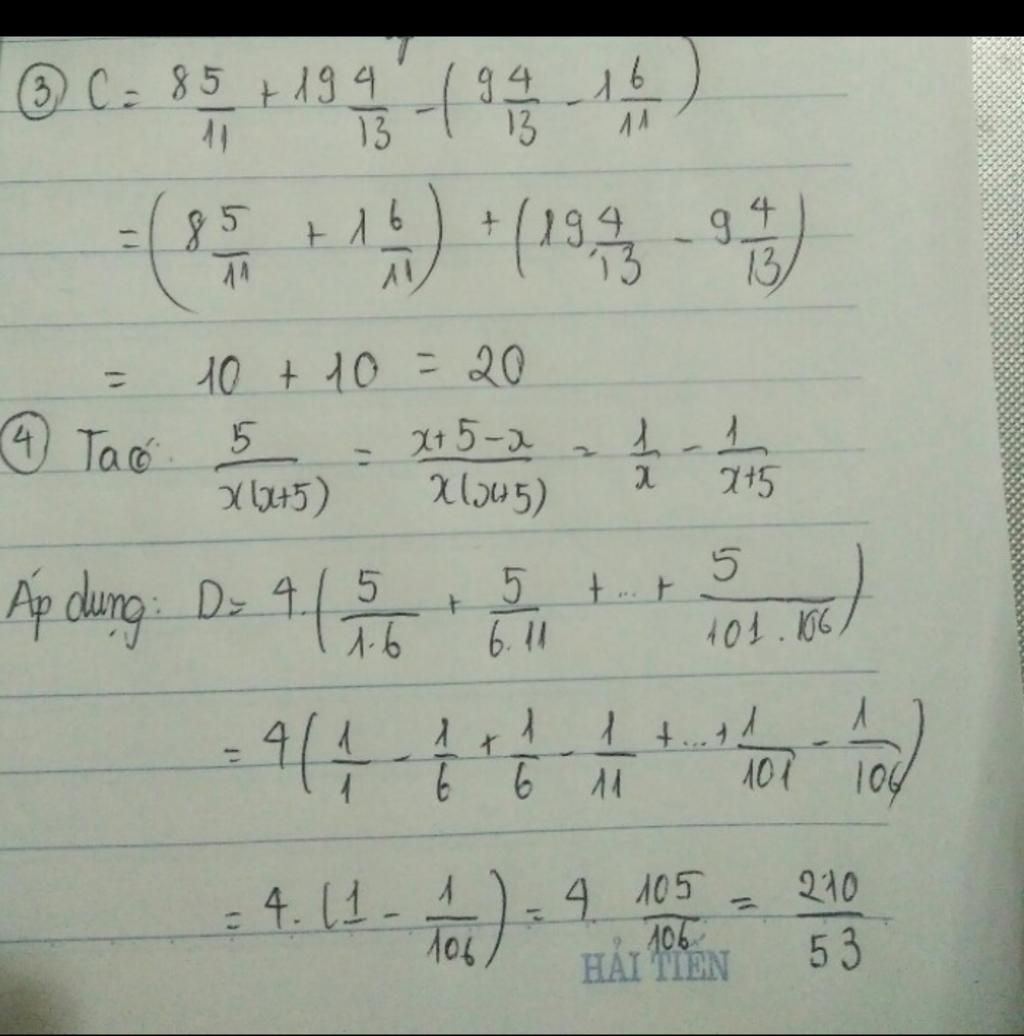 ③ C = 8 5/11 + 19 4/13 - (9 4/13 - 1 6/11)
= (8 5/11 + 1 6/11) + (19 4/13 - 9 4/13)
= 10 + 10 = 20
④ Ta có: 5/x(x+5) = x+5-x/x(x+5) = 1/x - 1/x+5
Áp dụng: D = 4.(5/1.6 + 5/6.11 + ... + 5/101.106)
= 4(1/1 - 1/6 + 1/6 - 1/11 + ... + 1/101 - 1/106)
= 4.(1 - 1/106) = 4 105/106 = 210/53
HẢI TIẾN